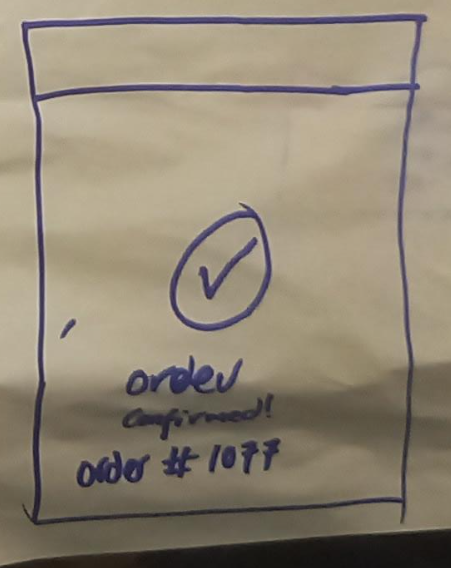 order
confirmed!
order # 1077